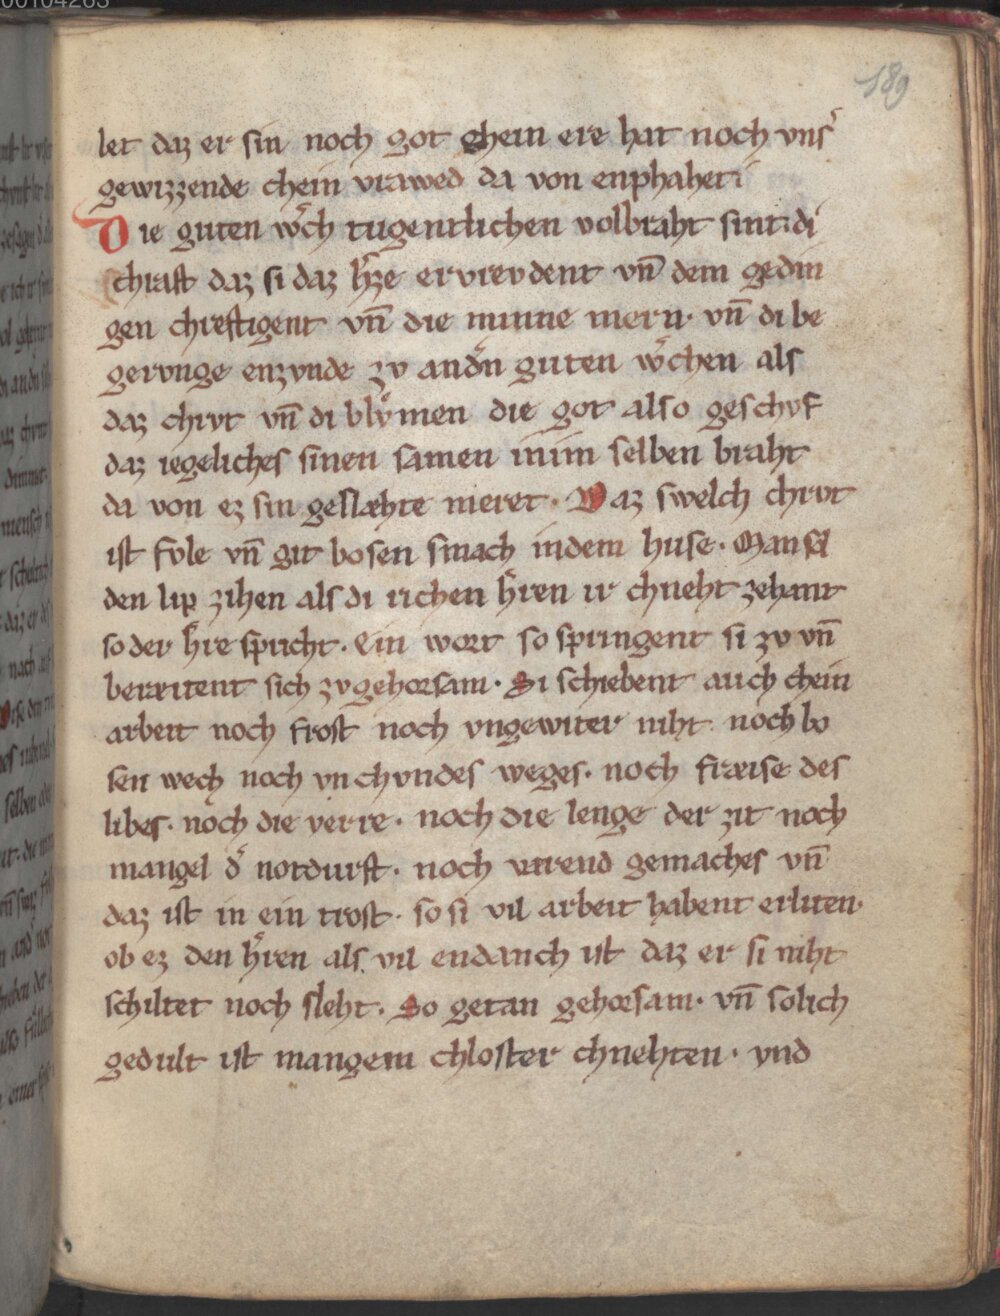 189
let daz er sin noch got ghein ere hat noch vnſ᷑
gewizzende chein vrawed da von enphahet.
Die guten w᷑ch tugentlichen volbraht sint. di
chraft daz si daz h᷑ze ervrevdent vn̄ dem gedin
gen chreftigent vn̄ die minne mern· vn̄ di be
gervnge enzvnde zv and᷑n guten w᷑chen als
daz chrvt vn̄ di blv̊men die got also geschvf
daz iegeliches sinen samen inim selben braht
da von ez sin geslæhte meret· Waz swelch chrvt
ist fvle vn̄ git bosen smach indem huse· Man sol
den lip zihen als di richen h᷑ren ir chneht zehant
so der h᷑re spricht· Ein wort so springent si zv vn̄
beræitent sich zvgehorsam· Si schiebent auch chein
arbeit noch frost noch vngewiter niht noch bo
sen wech noch vnchvndes weges· noch fræise des
libes· noch die verre· noch die lenge der zit noch
mangel d᷑ notdurft· noch varend gemaches vn̄
daz ist in ein trost· so si vil arbeit habent erliten·
ob ez den h᷑ren als vil endanch ist daz er si niht
schiltet noch sleht· So getan gehorsam· vn̄ solich
gedult ist mangem chloster chnehten· vnd